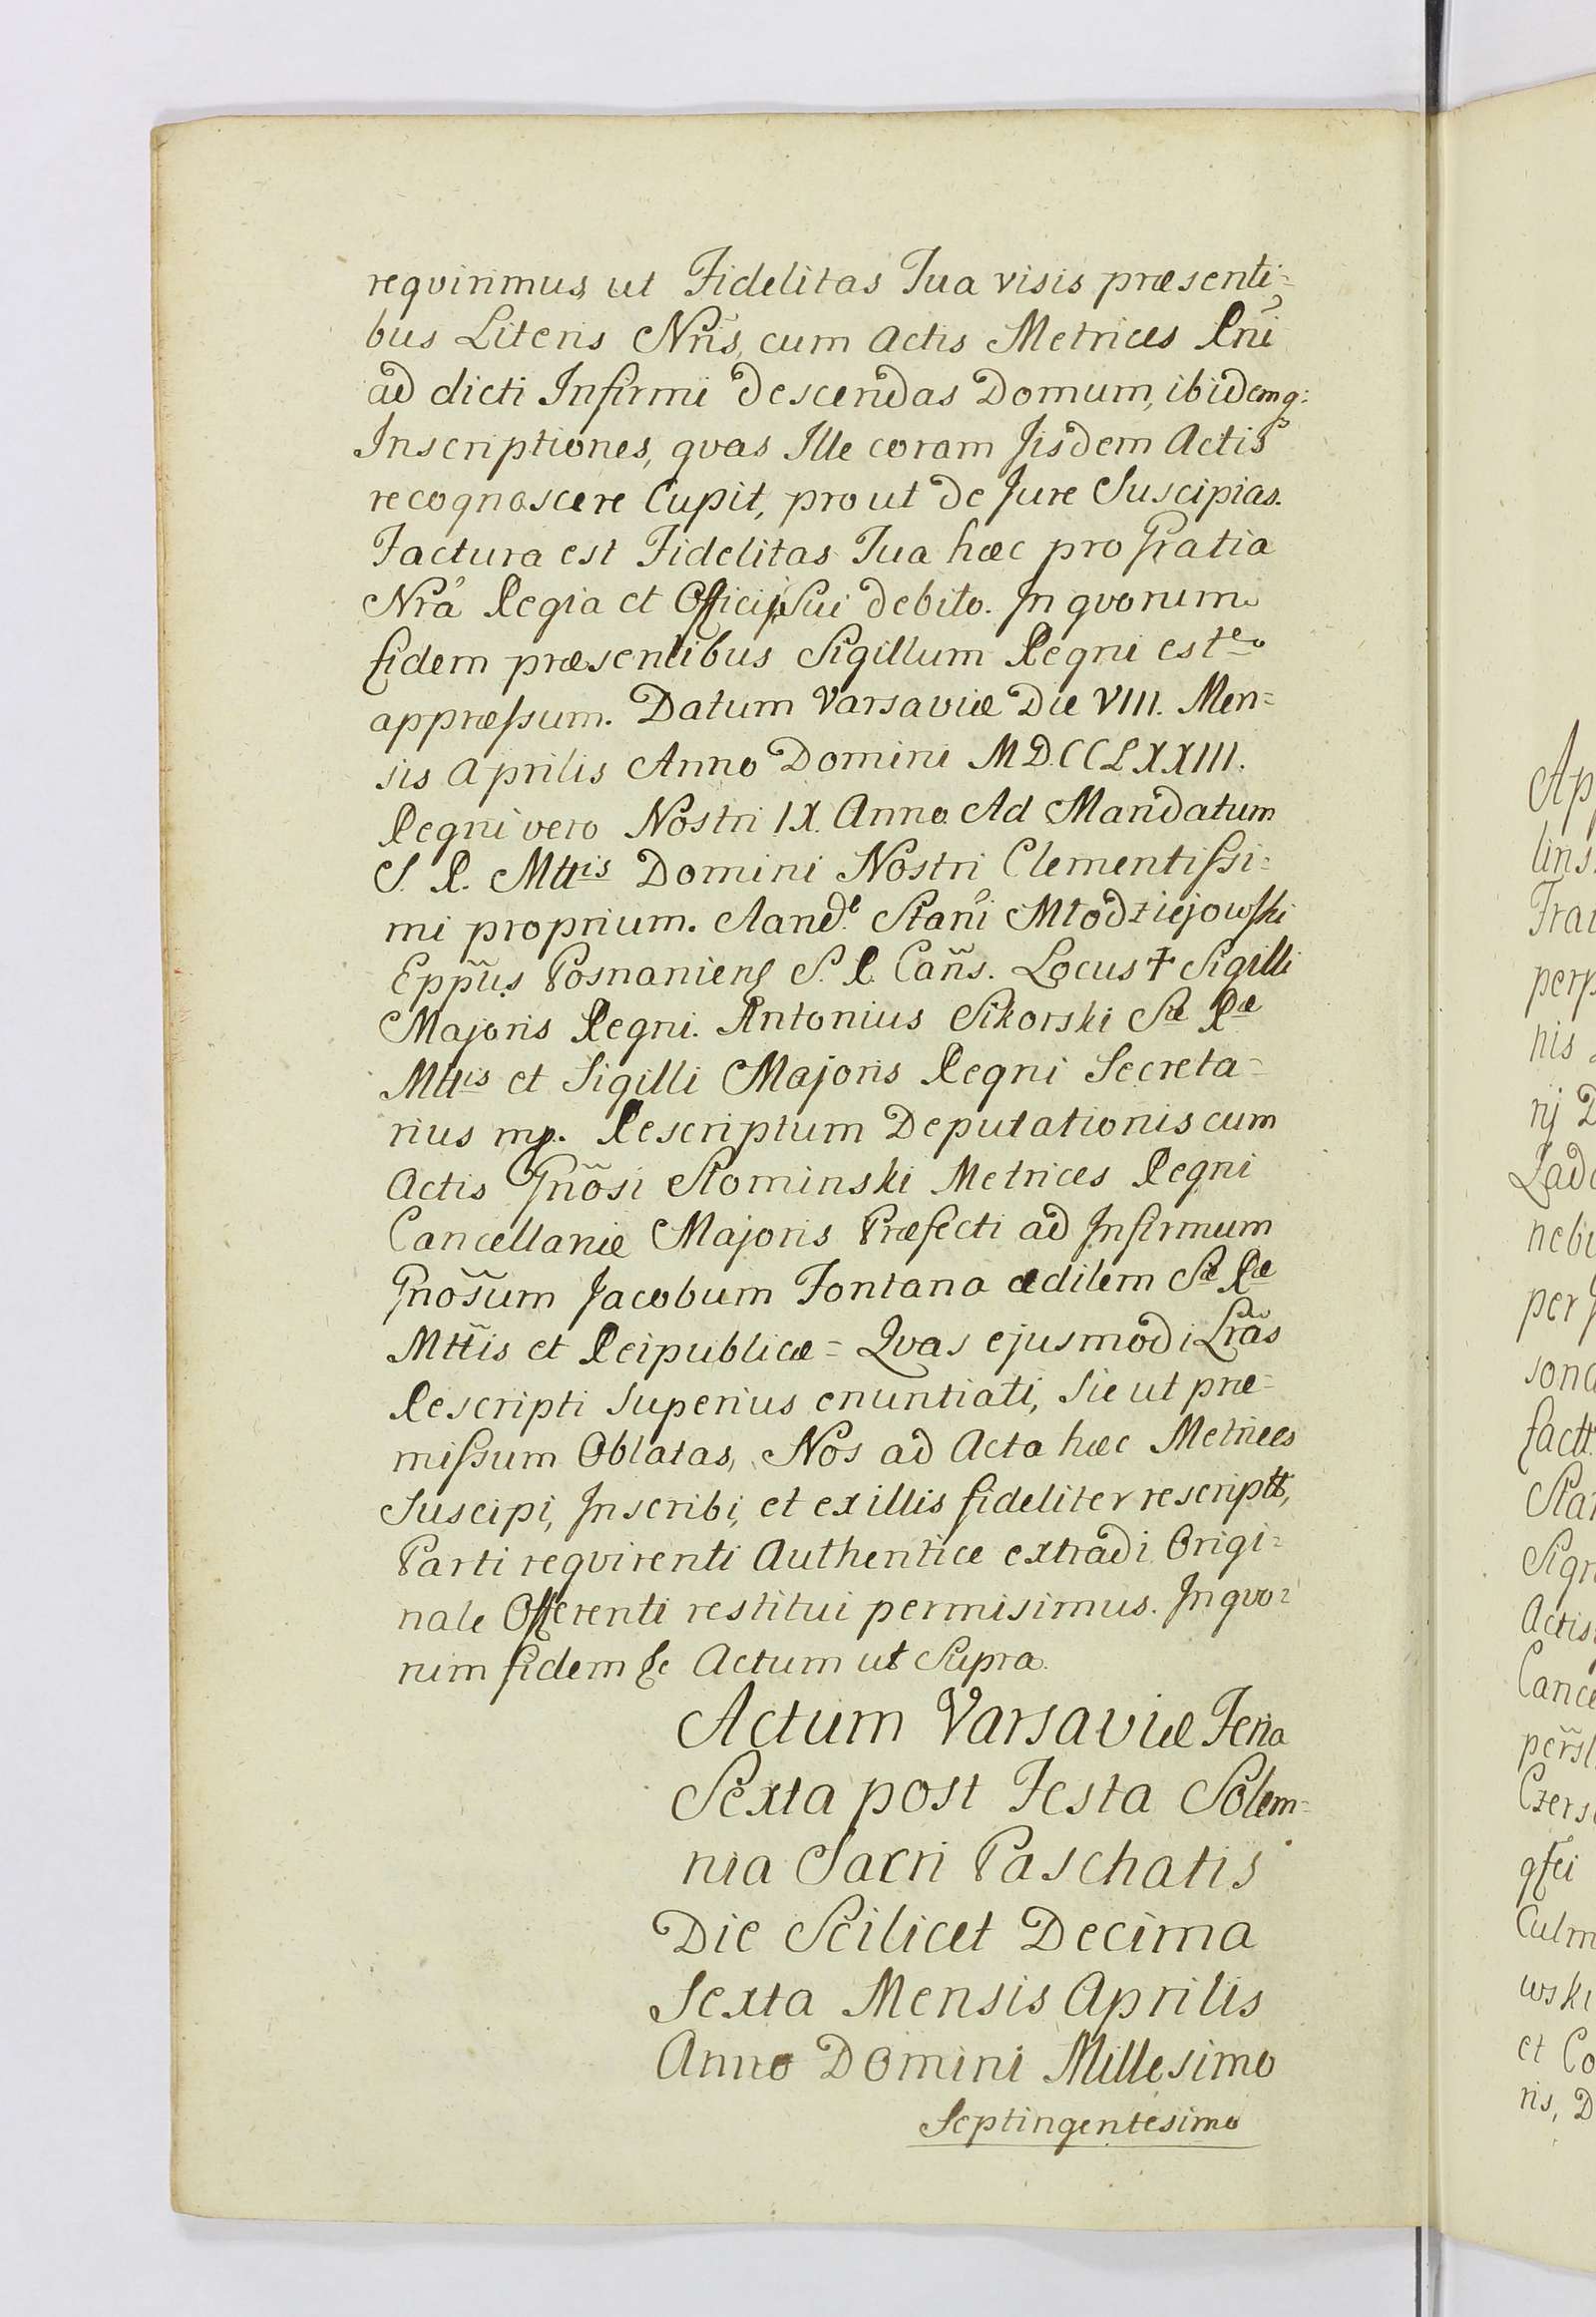 reqvirimus, ut Fidelitas Tua visis præsenti=
bus Literis Nrĩs, cum Actis Metrices Rñi
ad dicti Infirmi descendas Domum, ibidemq:
Inscriptiones, qvas Ille coram Iisdem Actis
recognoscere Cupit, prout de Jure Suscipias.
Factura est Fidelitas Tua hæc pro Gratia
Nrã Regia et Officij Sui debito. In qvorum
fidem præsentibus Sigillum Regni est
appræssum. Datum Varsaviæ Die VIII. Men=
sis Aprilis Anno Domini MD.CCLXXIII.
Regni vero Nostri IX. Anno. Ad Mandatum
S. R. Mttis Domini Nostri Clementissi=
mi proprium. And. Stanĩ Młodziejowski
Eppũs Posnaniens S. R. Cañs. Locus † Sigilli
Majoris Regni. Antonius Sikorski Sæ Ræ
Mttis et Sigilli Majoris Regni Secreta=
rius mp. Rescriptum Deputationis cum
Actis Gñosi Słominski Metrices Regni
Cancellariæ Majoris Præfecti ad Infirmum
Gñosum Jacobum Fontana ædilem Sæ Ræ
Mttis et Reipublicæ = Qvas ejusmodi Lrãs
Rescripti superius enuntiati, sic ut præ=
missum Oblatas, Nos ad Acta hæc Metrices
Suscipi, Inscribi, et ex illis fideliter rescriptt,
Parti reqvirenti Authentice extradi Origi=
nale Offerenti restitui permisimus. In qvo=
rum fidem &c Actum ut Supra.
Actum Varsaviæ Feria
Sexta post Festa Solem=
nia Sacri Paschatis
Die Scilicet Decima
Sexta Mensis Aprilis
Anno Domini Millesimo
Septingentesimo
Ap
lins.
Fra
perp
his
rij D
Lado
nebi
per
sona
factt
Stan
Sign
Actis
Cance
Czers
Culm
wski
et Co
ris, D